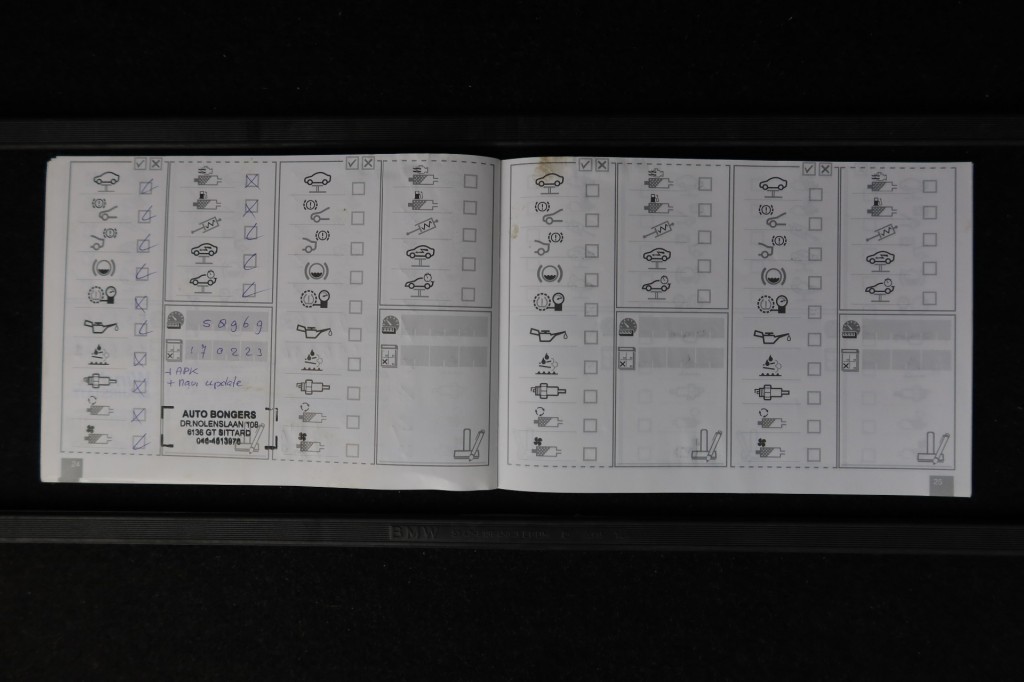 50969
170223
+ APK
+ Navi update
AUTO BONGERS
DR.NOLENSLAAN 108
6136 GT SITTARD
046-4513976
24
25
BMW